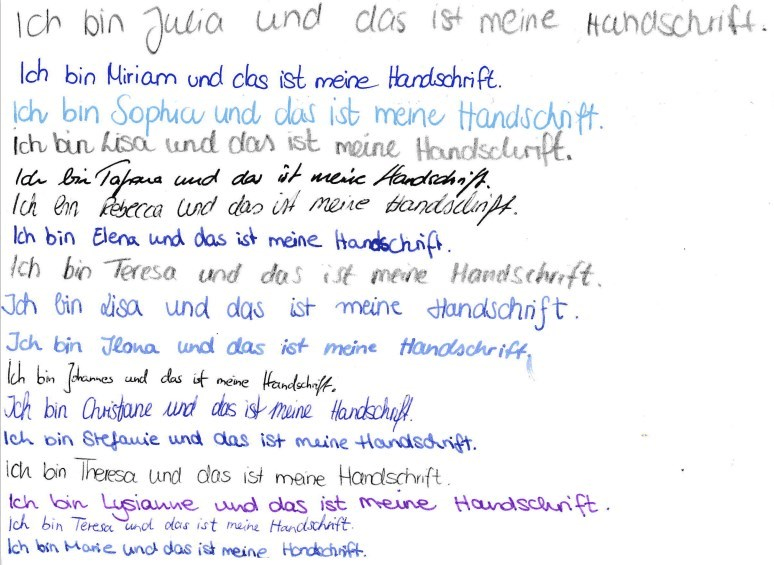 Ich bin Julia und das ist meine Handschrift.
Ich bin Miriam und das ist meine Handschrift.
Ich bin Sophia und das ist meine Handschrift.
Ich bin Lisa und das ist meine Handschrift.
Ich bin und das ist meine Handschrift.
Ich bin Rebecca und das ist meine Handschrift.
Ich bin Elena und das ist meine Handschrift.
Ich bin Teresa und das ist meine Handschrift.
Ich bin Lisa und das ist meine Handschrift.
Ich bin Ilona und das ist meine Handschrift.
Ich bin Johannes und das ist meine Handschrift.
Ich bin Christiane und das ist meine Handschrift.
Ich bin Stefanie und das ist meine Handschrift.
Ich bin Theresa und das ist meine Handschrift.
Ich bin Lysianne und das ist meine Handschrift.
Ich bin Teresa und das ist meine Handschrift.
Ich bin Marie und das ist meine Handschrift.